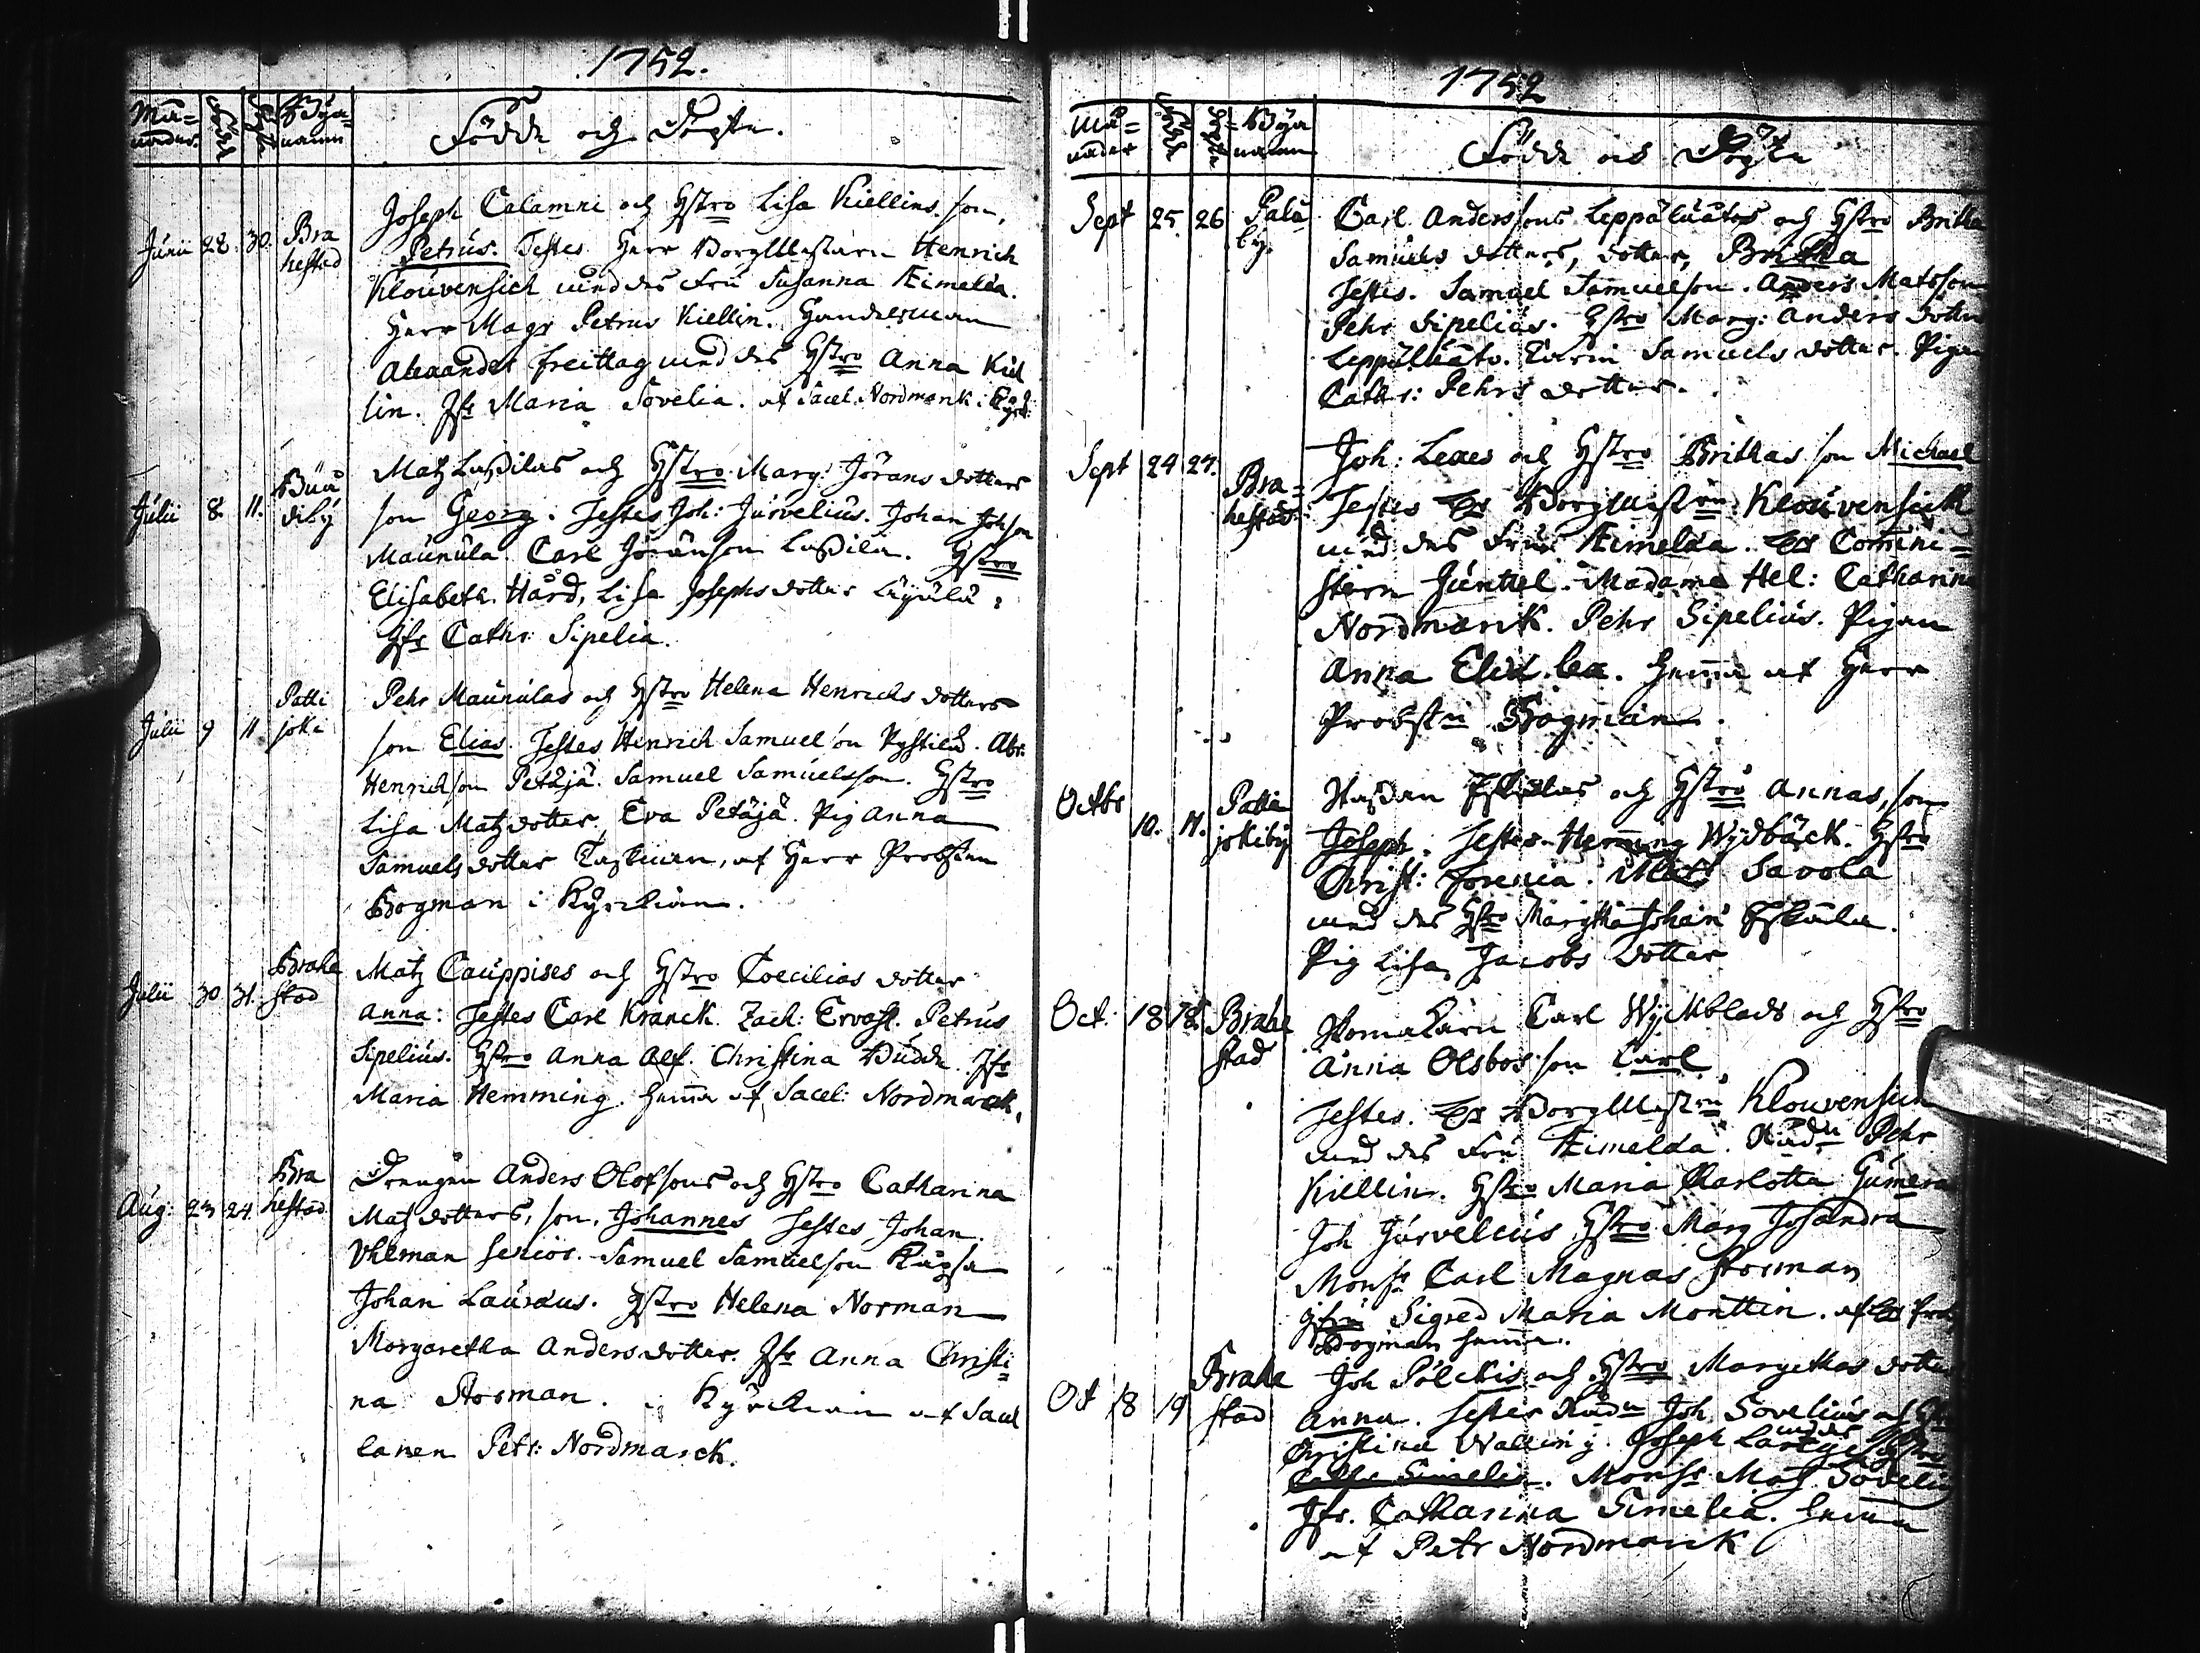 1752.
Må=
nader.
Födde
Döpte
Bya
namn
Födde och Döpte.
Junii 28. 30. Bra
hestad
Joseph Calamni och Hstro Lisa Kiellins son,
Petrus. Testes Herr Borgmestarn Henrich
Klouvensich med des Fru Susanna Aimelæa.
Herr Magr Petrus Kiellin. Handelsman
Alexander Freittag med des Hstro Anna Kiel
lin. Jfr Maria Sovelia. af Sacel. Nordmark i Kyrk:
Julii 8. 11.
diby
Matz Laßilas och Hstro Marg: Jörans dotters
son Georg. Testes Joh: Jurvelius. Johan Johson
Maunula. Carl Jöranson Laßila. Hstro
Elisabeth Hård, Lisa Josephs dotter
Jfr Cathr: Sipelia.
Julii 9 11 Patti
joki
Pehr Maunulas och Hstro Helena Henrichs dotters
son Elias. Testes Henrich Samuelson. Abr:
Henrichson Petäjä. Samuel Samuelsson. Hstro
Lisa Matz dotter, Eva Petäjä. Pig Anna
Samuels dotter, af Herr Probsten
Hogman i Kyrckian.
Julii 30 31. Brahe
stad
Matz Cauppises och Hstro Cœcilias dotter
Anna: Testes Carl Kranck. Zach: Ervast. Petrus
Sipelius. Hstro Anna Alf. Christina Budde. Jfr
Maria Hemming. hema af Sacel: Nordmarck.
Aug: 23 24. Bra
hestad
Drengen Anders Olofsons och Hstro Catharina
Matz dotters, son. Johannes Testes Johan
Uhlman senior. Samuel Samuelson
Johan Lauræus. Hstro Helena Norman
Margaretha Anders dotter. Jfr Anna Christi=
na Storman. i Kyrckian af Sacel
lanen Petr: Nordmarck.
1752
Må=
nader
Födde
Döpte
Bya
namn
Födde och Döpte
Sept 25. 26 Palo
by.
Carl Anderssons Leppäluåtos och Hstro Britha
Samuels dotters, dotter, Britha
Testes. Samuel Samuelson. Anders Matsson
Pehr Sipelius. Hstro Marg: Anders dotter
Leppäluåto. Carin Samuels dotter. Pigan
Cathr: Pehrs dotter.
Sept 24 27. Bra=
hestad
Joh: Lexes och Hstro Brithas son Michael
Testes Hr Borgmestrn Klouvensich
med des Fru Aimelæa. Hr Comini=
stern Juntul. Madame Hel: Catharina
Nordmarck. Pehr Sipelius. Pigan
Anna. hema af Herr
Probsten Hogman.
Octbr 10. 11. Patti
jokiby
Staffan och Hstro Annas, son
Joseph. Testes Hemming Wydbäck. Hstro
Christ: Forenia. Matts Savola
med des Hstro Margetha Johan
Pig Lisa Jacobs dotter
Oct. 18 18. Brahe
stad
Carl Wijkblads och Hstro
Anna Olsbos son Carl
Testes. Hr Borgmestrn Klouvensich
med des Fru Aimelæa. Rådm Pehr
Kiellin. Hstro Maria Charlotta Gumera
Joh Jurvelius Hstro Marg Josandra
Monsr Carl Magnus Storman
Jfru Sigred Maria Monttin. af Hr Prob
Hogman hema.
Oct 18 19 Brahe
stad
Joh Pölckis och Hstro Margethas dotter
Anna. Testes Rådm Joh Sovelius och
Christina Walling. Joseph
Cathr Simelia. Monsr Matz Sovelius
Jfr. Catharina Simelia. hema
af Petr Nordmarck